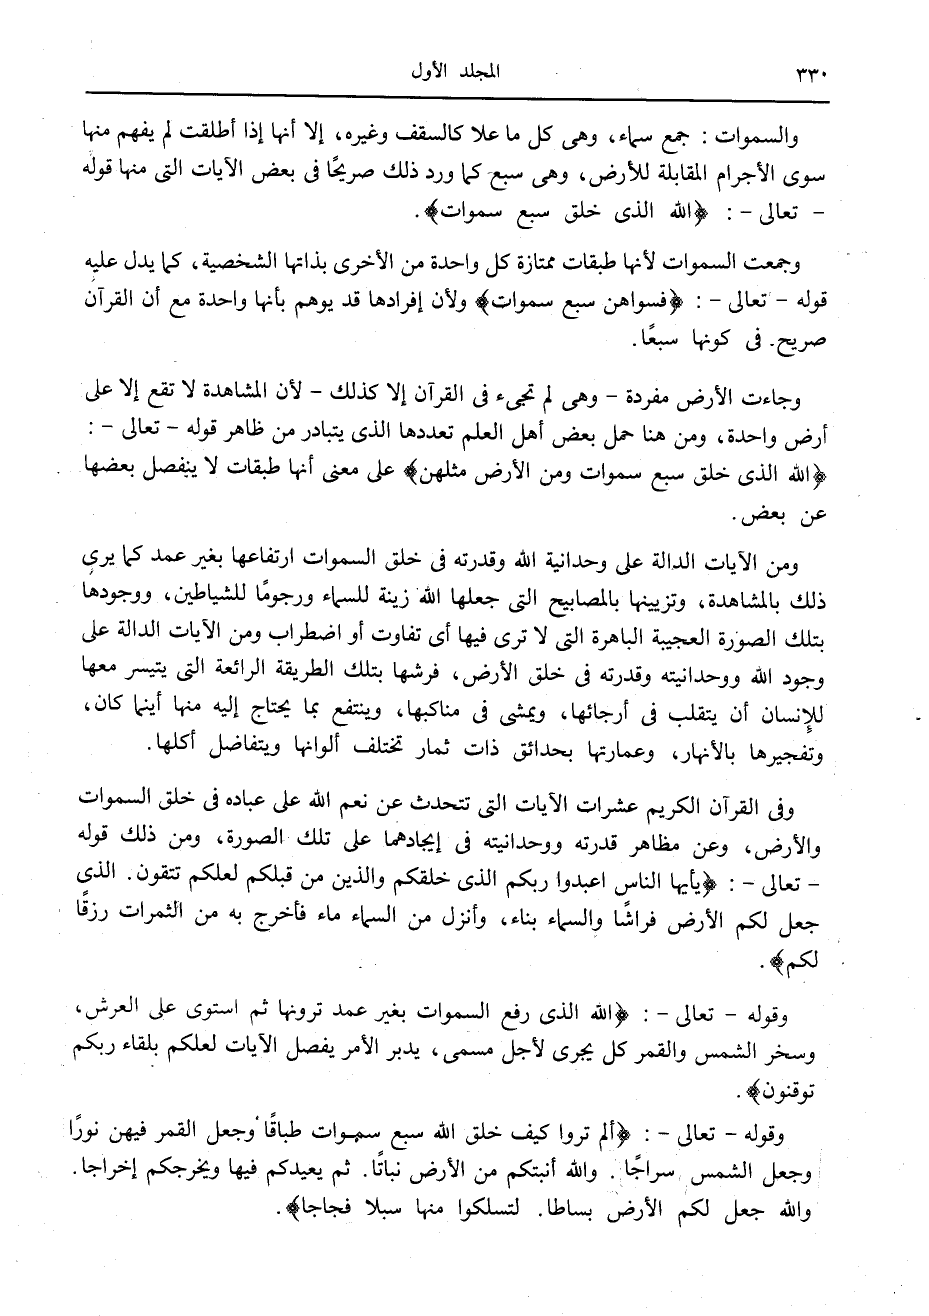 ٣٣٠ المجلد الأول
والسموات : جمع سماء، وهى كل ما علا كالسقف وغيره، إلا أنها إذا أطلقت لم يفهم منها
سوى الأجرام المقابلة للأرض، وهى سبع كما ورد ذلك صريحًا فى بعض الآيات التى منها قوله
- تعالى - : ﴿الله الذى خلق سبع سموات﴾.
وجمعت السموات لأنها طبقات ممتازة كل واحدة من الأخرى بذاتها الشخصية، كما يدل عليه
قوله - تعالى - : ﴿فسواهن سبع سموات﴾ ولأن إفرادها قد يوهم بأنها واحدة مع أن القرآن
صريح. فى كونها سبعًا.
وجاءت الأرض مفردة - وهى لم تجىء فى القرآن إلا كذلك - لأن المشاهدة لا تقع إلا على
أرض واحدة، ومن هنا حمل بعض أهل العلم تعددها الذى يتبادر من ظاهر قوله - تعالى - :
﴿الله الذى خلق سبع سموات ومن الأرض مثلهن﴾ على معنى أنها طبقات لا ينفصل بعضها
عن بعض.
ومن الآيات الدالة على وحدانية الله وقدرته فى خلق السموات ارتفاعها بغير عمد كما يرى
ذلك بالمشاهدة، وتزيينها بالمصابيح التى جعلها الله زينة للسماء ورجومًا للشياطين، ووجودها
بتلك الصورة العجيبة الباهرة التى لا ترى فيها أى تفاوت أو اضطراب ومن الآيات الدالة على
وجود الله ووحدانيته وقدرته فى خلق الأرض، فرشها بتلك الطريقة الرائعة التى يتيسر معها
للإنسان أن يتقلب فى أرجائها، ويمشى فى مناكبها، وينتفع بما يحتاج إليه منها أينما كان،
وتفجيرها بالأنهار، وعمارتها بحدائق ذات ثمار تختلف ألوانها ويتفاضل أكلها.
وفى القرآن الكريم عشرات الآيات التى تتحدث عن نعم الله على عباده فى خلق السموات
والأرض، وعن مظاهر قدرته ووحدانيته فى إيجادهما على تلك الصورة، ومن ذلك قوله
- تعالى - : ﴿يأيها الناس اعبدوا ربكم الذى خلقكم والذين من قبلكم لعلكم تتقون. الذى
جعل لكم الأرض فراشًا والسماء بناء، وأنزل من السماء ماء فأخرج به من الثمرات رزقًا
لكم﴾.
وقوله - تعالى - : ﴿الله الذى رفع السموات بغير عمد ترونها ثم استوى على العرش،
وسخر الشمس والقمر كل يجرى لأجل مسمى، يدبر الأمر يفصل الآيات لعلكم بلقاء ربكم
توقنون﴾.
وقوله - تعالى - : ﴿ألم تروا كيف خلق الله سبع سموات طباقًا وجعل القمر فيهن نورًا
وجعل الشمس سراجًا. والله أنبتكم من الأرض نباتًا. ثم يعيدكم فيها ويخرجكم إخراجا.
والله جعل لكم الأرض بساطا. لتسلكوا منها سبلا فجاجا﴾.